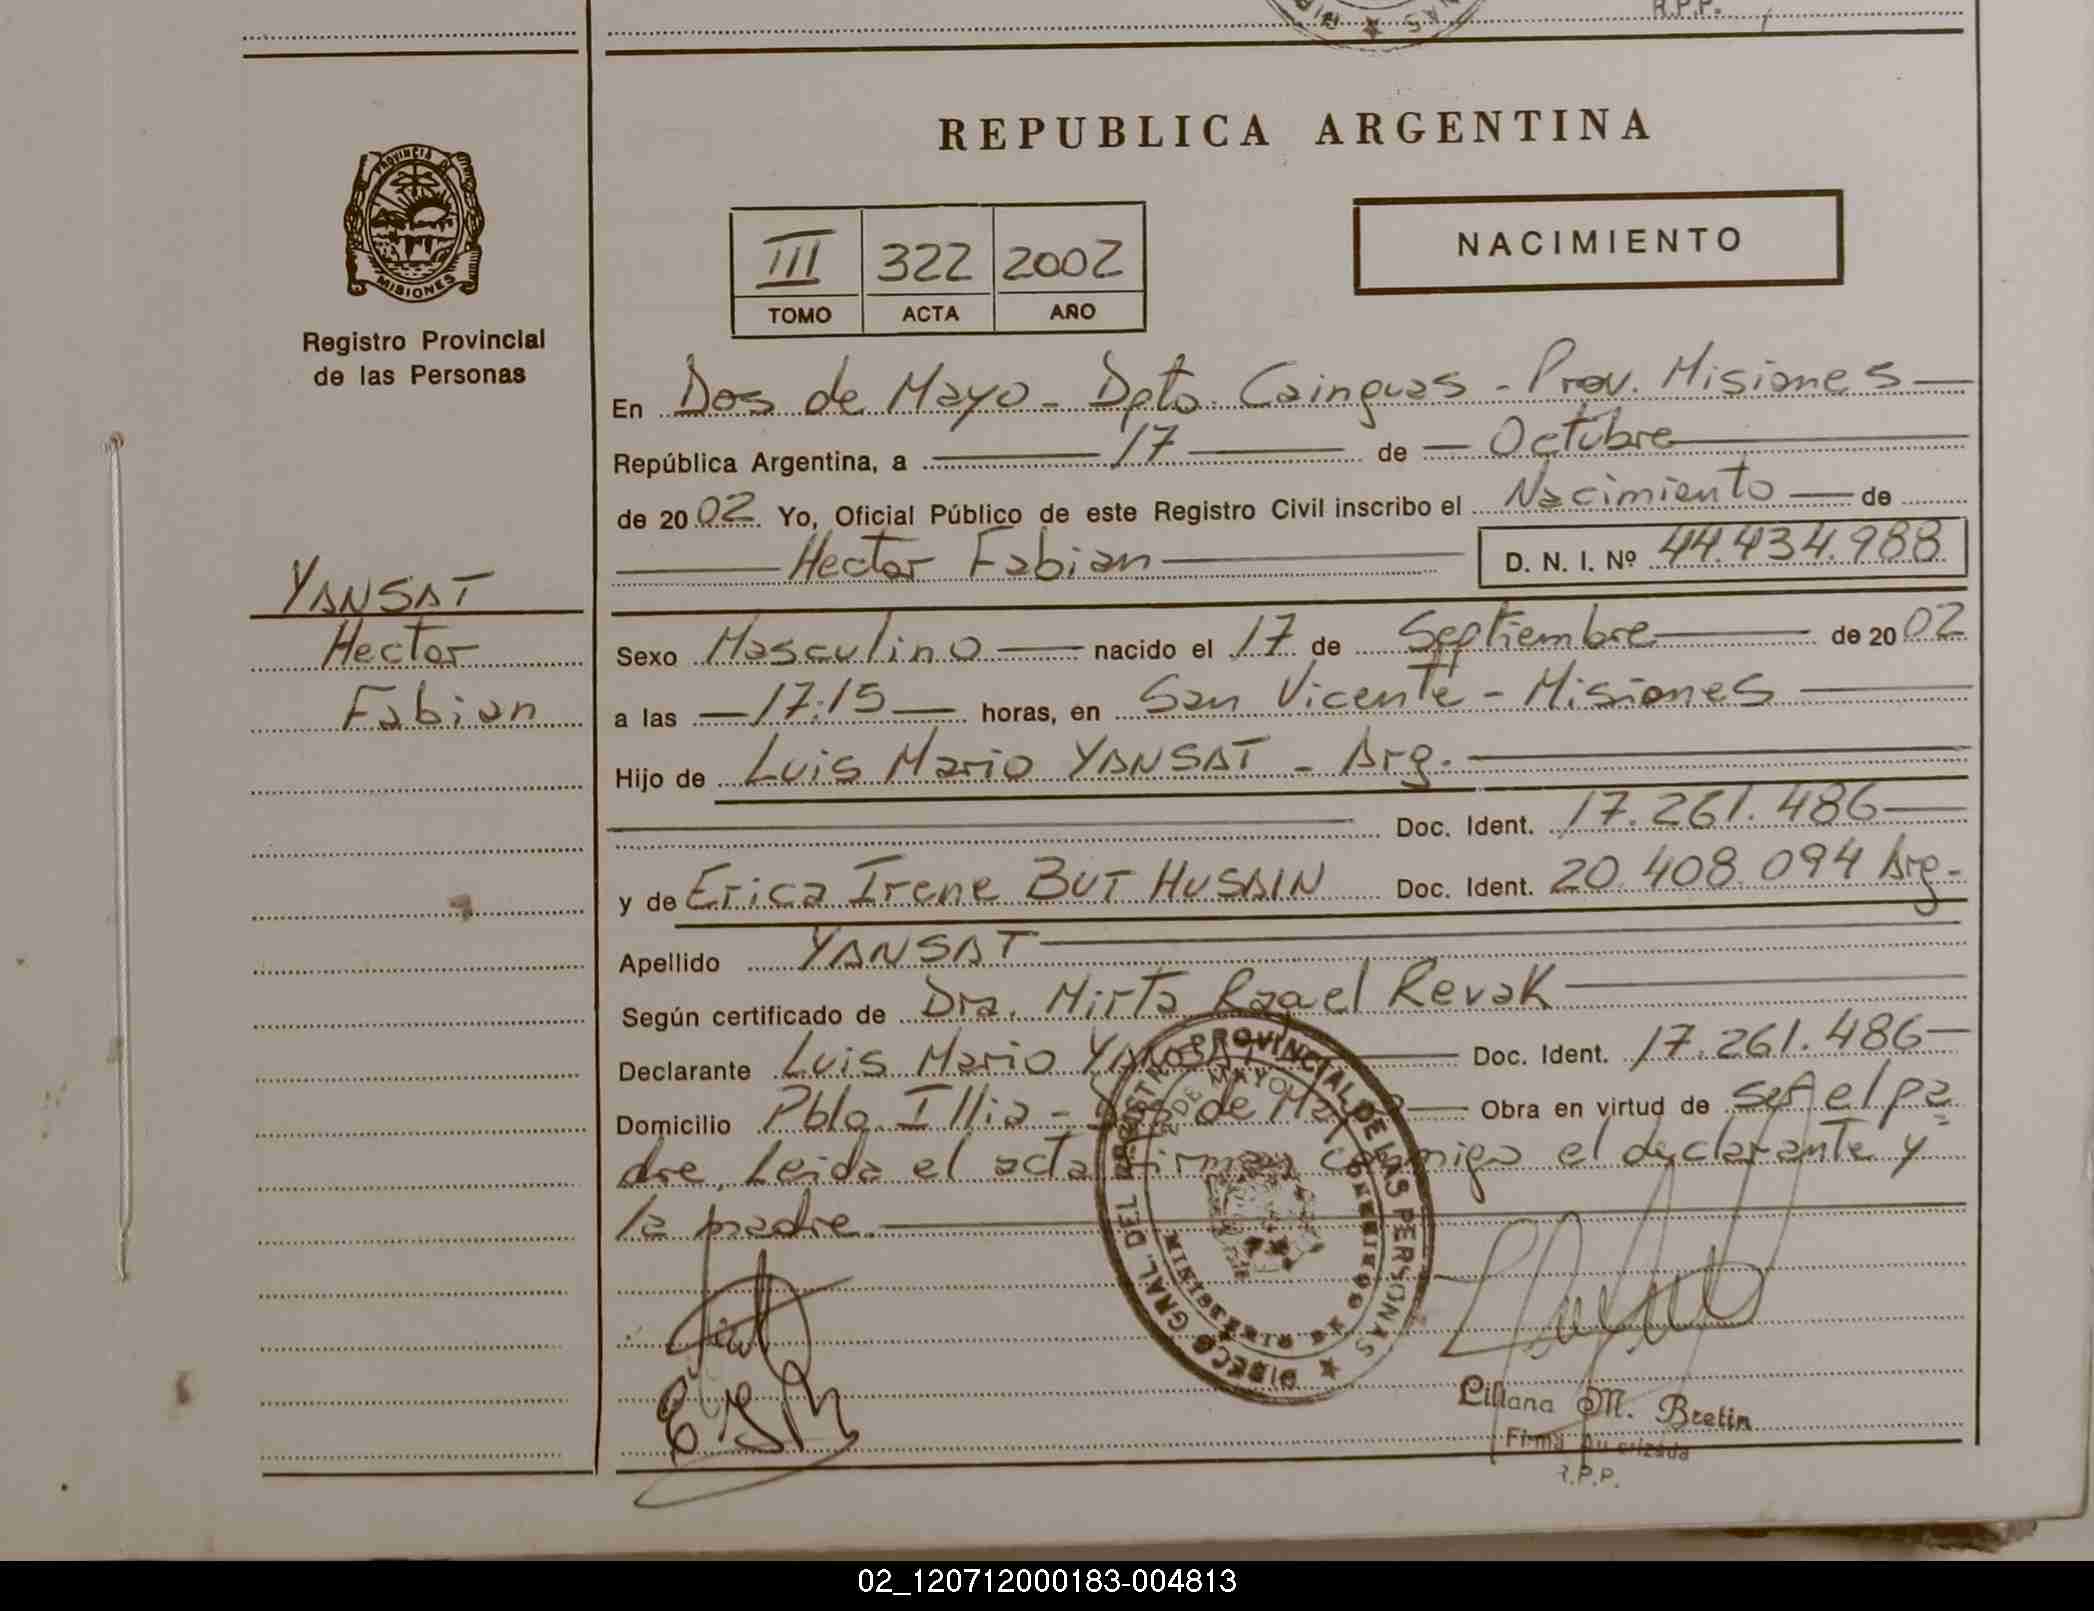 R.P.P.
PROVINCIA DE
MISIONES
Registro Provincial
de las Personas
YANSAT
Hector
Fabian
REPUBLICA ARGENTINA
III 322 2002
TOMO ACTA AÑO
NACIMIENTO
En Dos de Mayo - Dpto. Cainguas - Prov. Misiones
República Argentina, a 17 de Octubre
de 2002 Yo, Oficial Público de este Registro Civil inscribo el Nacimiento de
Hector Fabian D. N. I. Nº 44.434.988
Sexo Masculino nacido el 17 de Septiembre de 2002
a las 17:15 horas, en San Vicente - Misiones
Hijo de Luis Mario YANSAT - Arg.
Doc. Ident. 17.261.486
y de Erica Irene BUT HUSAIN Doc. Ident. 20.408.094 Arg.
Apellido YANSAT
Según certificado de Dra. Mirta Raquel Revak
Declarante Luis Mario YANSAT Doc. Ident. 17.261.486
Domicilio Pblo. Illia - Dos de Mayo Obra en virtud de ser el pa
dre. Leida el acta firman conmigo el declarante y
la madre.
DIRECC. GRAL. DEL REGISTRO PROVINCIAL DE LAS PERSONAS
2 DE MAYO
Liliana M. Bretin
Firma Autorizada
R.P.P.
02_120712000183-004813